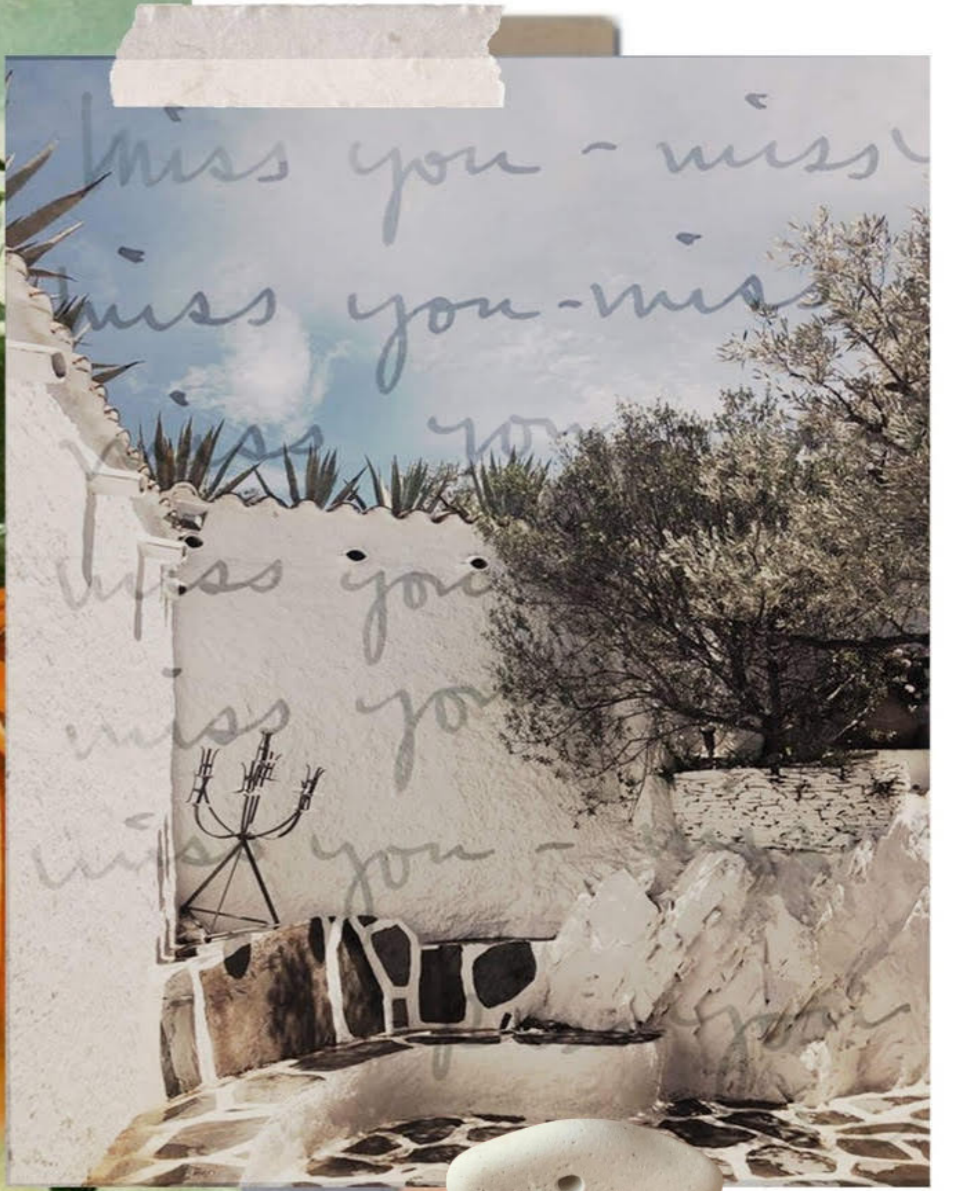 miss you - miss
miss you - miss
miss you
miss you
miss you
miss you -
you